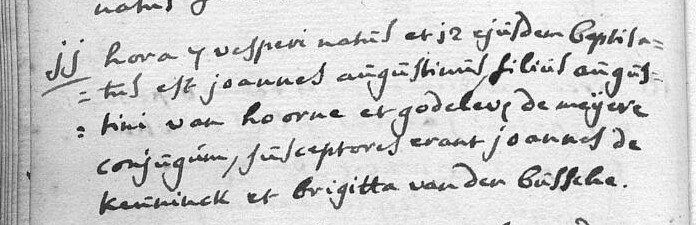 natus
jj hora 7 vesperi natus et j2 ejusdem baptisa=
=tus est joannes augustinus, filius augus=
=tini van hoorne et godelevę de meijere
conjugum, susceptores erant joannes de
keuninck et brigitta van den bussche.